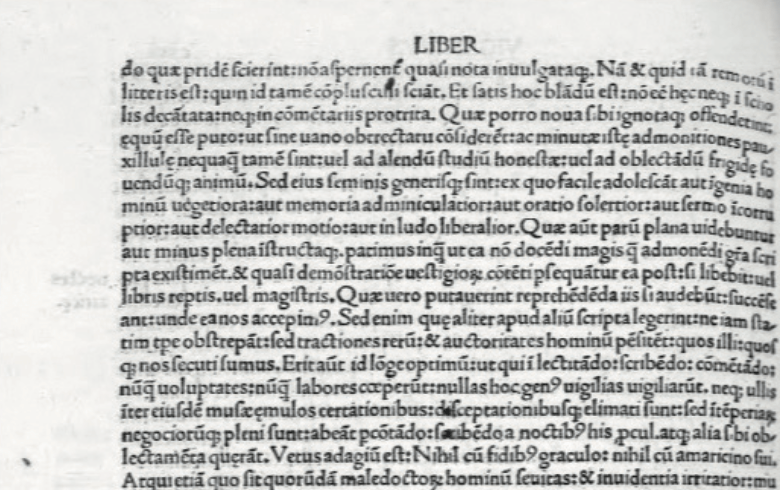 LIBER
do quæ pridẽ scierint:nõ aspernent quasi nota inuulgataq;. Nã & quid tã remotũ ĩ
litteris est:quin id tamẽ cõplusculi sciãt. Et satis hoc blãdũ est:nõ eẽ hęc neq; ĩ scho
lis decãtata:neq; in cõmẽtariis protrita. Quæ porro noua sibi ignotaq; offendetint:
equũ esse puto:ut sine uano obtrectatu cõsiderẽt:ac minutæ istę admonitiones pau
xillulę nequaq̃ tamẽ sint:uel ad alendũ studiũ honestæ:uel ad oblectãdũ frigidę fo
uendũq; animũ. Sed eius seminis generisq; sint:ex quo facile adolescãt aut ĩgenia ho
minũ uegetiora:aut memoria adminiculatior:aut oratio solertior:aut sermo ĩcorru
ptior:aut delectatior motio:aut in ludo liberalior. Quæ aũt parũ plana uidebuntur
aut minus plena ĩstructaq;. patimus inq̃ ut ea nõ docẽdi magis q̃ admonẽdi gr̃a scri
pta existimẽt.& quasi demõstratiõe uestigioꝝ cõtẽti psequãtur ea post:si libebit:uel
libris reptis.uel magistris. Quæ uero putauerint reprehẽdẽda iis si audebũt:succẽse
ant:unde ea nos accepimꝰ. Sed enim quę aliter apud aliũ scripta legerint:ne iam sta
tim tpe obstrepãt:sed tractiones rerũ:& auctoritates hominũ pẽsitẽt:quos illi:quos
q; nos secuti sumus. Erit aũt id lõge optimũ:ut qui ĩ lectitãdo:scribẽdo:cõmẽtãdo:
nũq̃ uoluptates:nũq̃ labores cœperũt:nullas hoc genꝰ uigilias uigiliarũt. neq; ullis
ĩter eiusdẽ musæ ęmulos certationibus:disceptationibusq; elimati sunt:sed ĩtẽperiaꝝ
negociorũq; pleni sunt:abeãt pcõtãdo:scribẽdo a noctibꝰ his pcul.atq; alia sibi ob-
lectamẽta querãt. Vetus adagiũ est:Nihil cũ fidibꝰ graculo: nihil cũ amaricino sui.
Atqui etiã quo sit quorũdã maledoctoꝝ hominũ seuitas:& inuidentia irritatior:mu